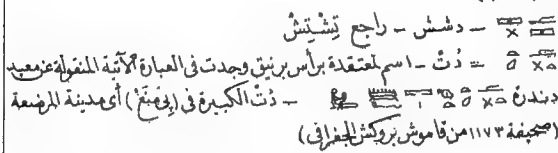 – دشش – راجع تِشْتِشْ
= دُتْ – اسم لمعتقدة برأس برنيق وجدت فى العبارة الآتية المنقولة عن معبد
دندرة – دُتْ الكبيرة فى ( ) أى مدينة المرضعة
(صحيفة ١١٧٣ من قاموش بروكش الجغرافى)